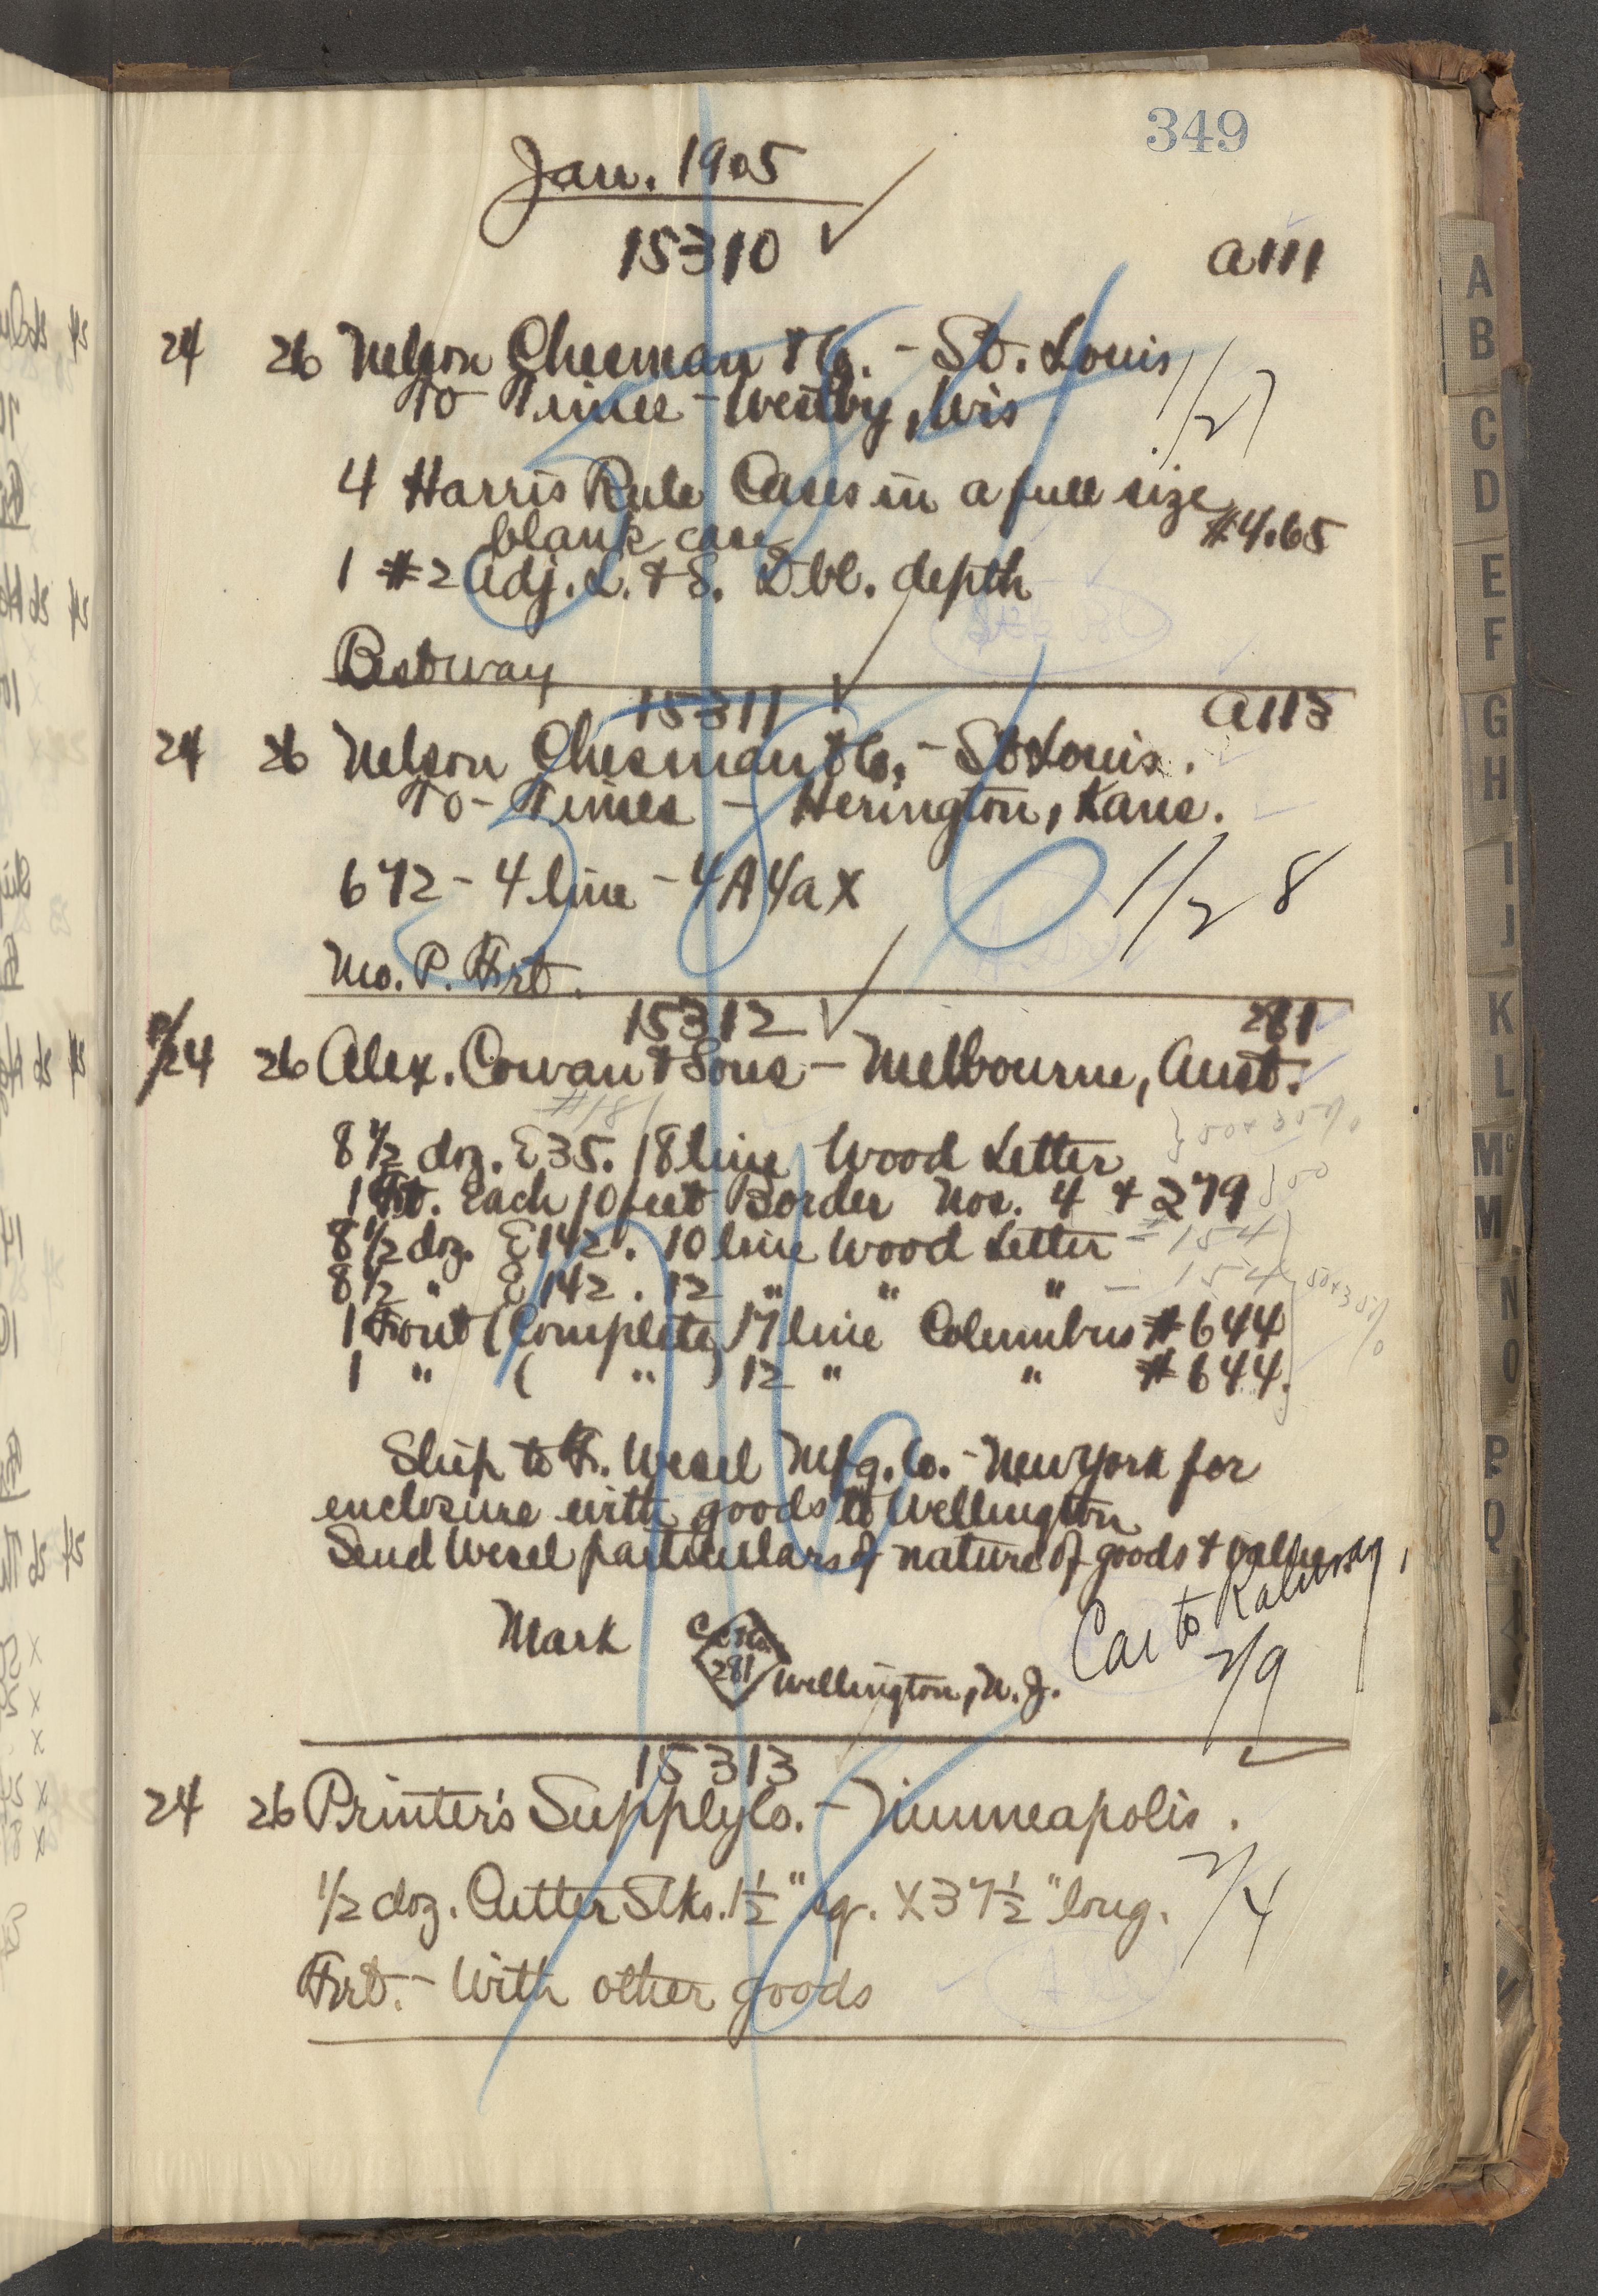 349
Jan. 1905
15310
a111
24 26 Nelson Chesman & Co. - St. Louis
To - Times - Westby, Wis
1/27
4 Harris Rule Cases in a full size
blank case
#4.65
1 #2 Adj. L. & S. Dbl. depth
Bestway
15311
a113
24 26 Nelson Chesman & Co. - St Louis.
To - Times - Herington, Kans.
672 - 4 line - 4A 4a X
1/28
Mo. P. Frt.
15312
281
24 26 Alex. Cowan & Sons - Melbourne, Aust.
#181
8 1/2 doz. E35. 18 line Wood Letter
1 Ft. Each 10 feet Border Nos. 4 & 279
8 1/2 doz. E142. 10 line Wood Letter - #154
8 1/2 " E142. 12 " " " - 154
1 Font (Complete) 17 line Columbus #644
1 " ( " ) 12 " " #644.
Ship to F. Wesel Mfg. Co. - New York for
enclosure with goods to Wellington
Send Wesel particulars of nature of goods & value
Mark
281
Wellington, N. Z.
Car to
2/9
15313
24 26 Printer's Supply Co. - Minneapolis.
1/2 doz. Cutter Stks. 1 1/2" sq. X 37 1/2" long.
2/4
Frt. - With other goods
A
B
C
D
E
F
G
H
I
J
K
L
Mc
M
N
O
P
Q